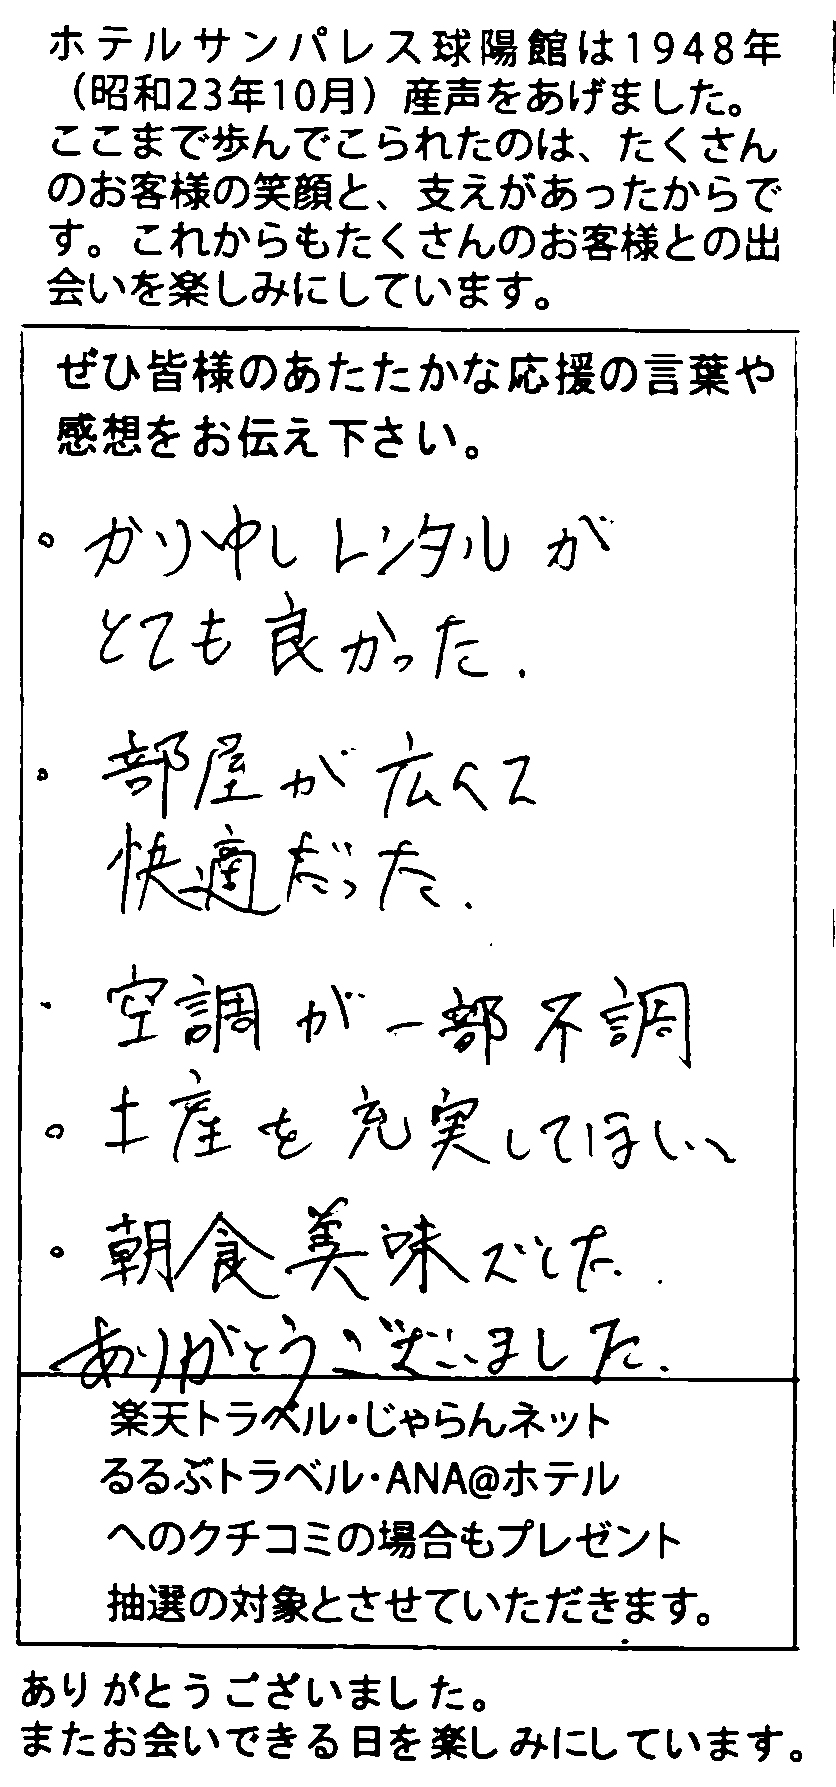 ホテルサンパレス球陽館は1948年
（昭和23年10月）産声をあげました。
ここまで歩んでこられたのは、たくさん
のお客様の笑顔と、支えがあったからで
す。これからもたくさんのお客様との出
会いを楽しみにしています。
ぜひ皆様のあたたかな応援の言葉や
感想をお伝え下さい。
。かりゆしレンタルが
とても良かった.
。部屋が広くて
快適だった.
・空調が一部不調
。土産を充実してほしい
。朝食美味でした.
ありがとうございました.
楽天トラベル・じゃらんネット
るるぶトラベル・ANA@ホテル
へのクチコミの場合もプレゼント
抽選の対象とさせていただきます。
ありがとうございました。
またお会いできる日を楽しみにしています。